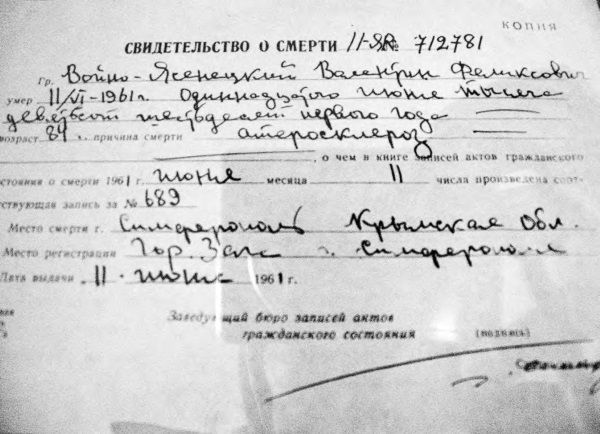 КОПИЯ
СВИДЕТЕЛЬСТВО О СМЕРТИ II-ЯЯ № 712781
Гр. Войно-Ясенецкий Валентин Феликсович
умер 11/VI-1961г. Одиннадцатого июня тысяча
девятьсот шестьдесят первого года
возраст 84 г. причина смерти атеросклероз
, о чем в книге записей актов гражданского
стояния о смерти 1961 г. июня месяца 11 числа произведена соот-
тствующая запись за № 689
Место смерти г. Симферополь Крымская Обл.
Место регистрации Гор. Загс г. Симферополя
Дата выдачи 11 июня 1961 г.
Заведующий бюро записей актов
гражданского состояния (подпись)